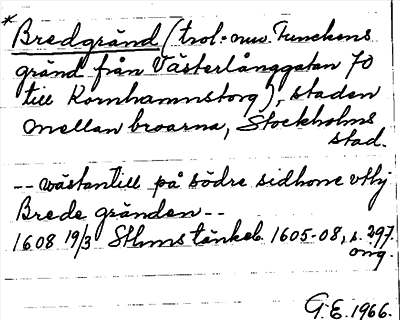 * Bredgränd (trol. nuv. Funckens
gränd från Västerlånggatan 70
till Kornhamnstorg), staden
mellan broarna, Stockholms
stad.
-- wästantill på södre sidhone vthj
Brede gränden --
1608 19/3 Sthms tänkeb. 1605-08, s. 297.
orig.
G.E. 1966.